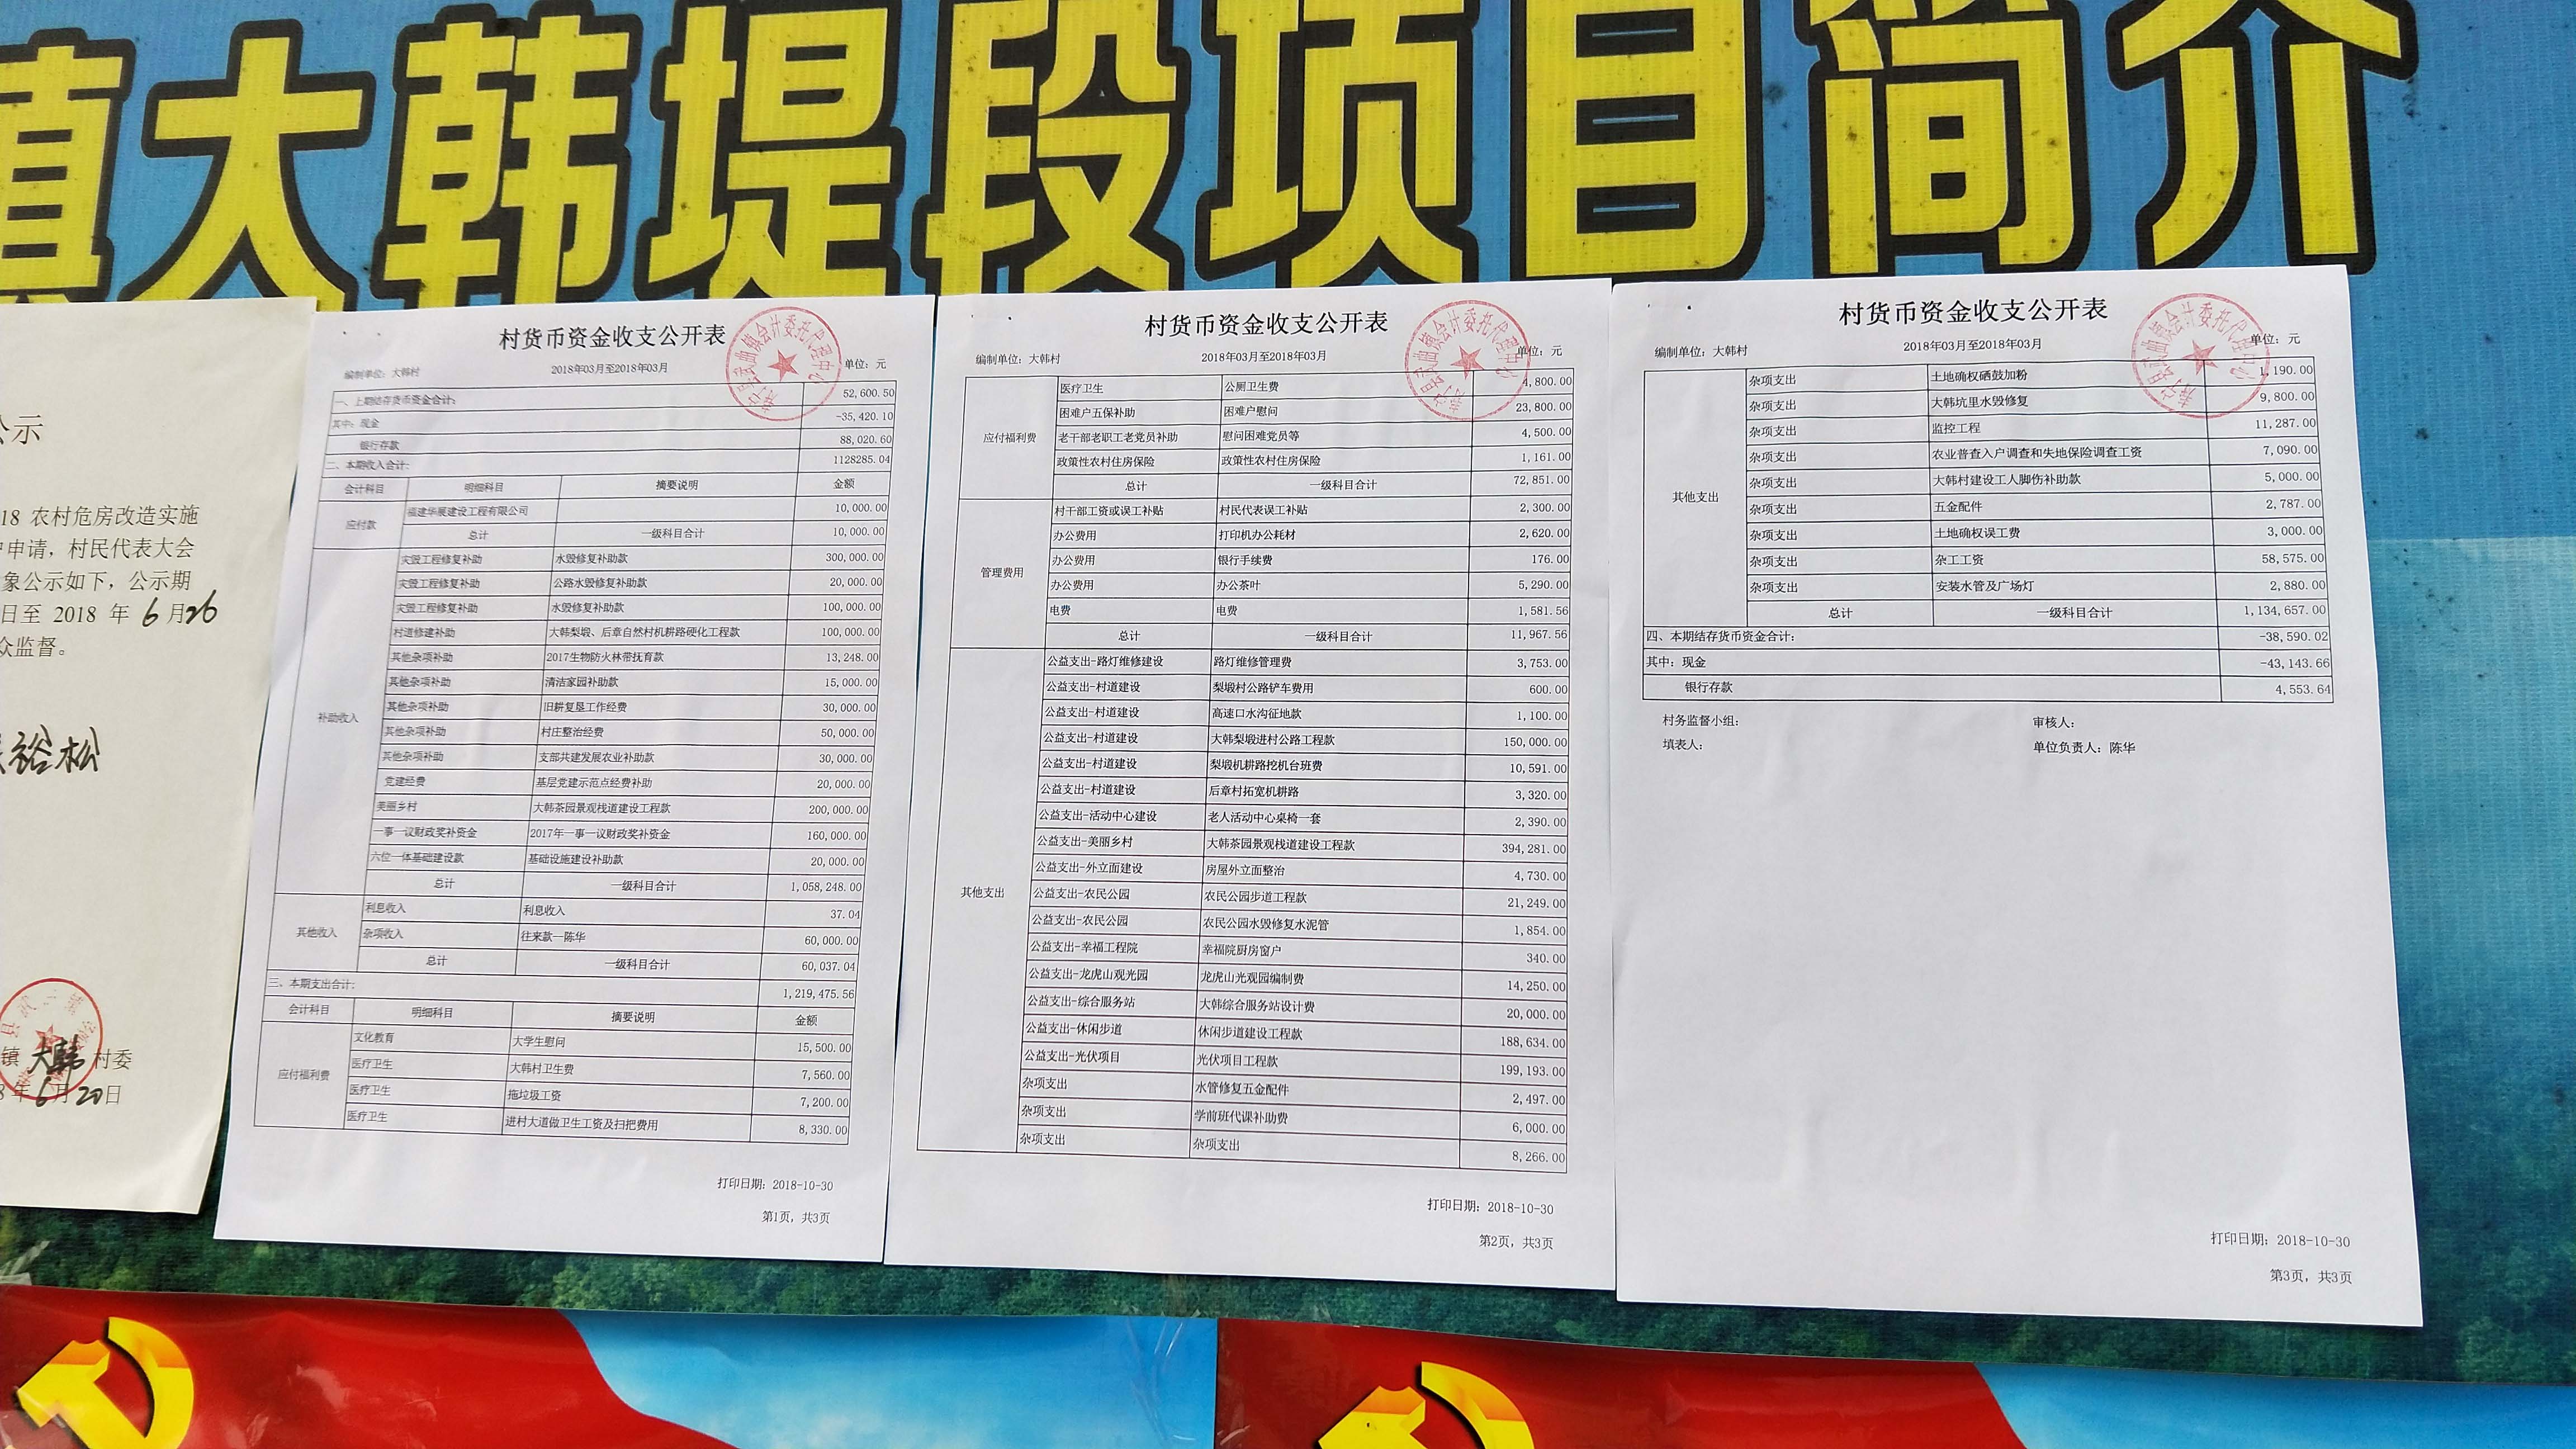 镇大韩堤段项目简介
公示
18 农村危房改造实施
申请，村民代表大会
象公示如下，公示期
日至 2018 年 6 月 26
众监督。
裕松
镇 大韩 村委
8年6月20日
村货币资金收支公开表
编制单位：大韩村 2018年03月至2018年03月 单位：元
一、上期结存货币资金合计： 52,600.50
其中：现金 -35,420.10
银行存款 88,020.60
二、本期收入合计： 1128285.04
会计科目 明细科目 摘要说明 金额
应付款 福建华展建设工程有限公司 10,000.00
总计 一级科目合计 10,000.00
补助收入 灾毁工程修复补助 水毁修复补助款 300,000.00
灾毁工程修复补助 公路水毁修复补助款 20,000.00
灾毁工程修复补助 水毁修复补助款 100,000.00
村道修建补助 大韩梨塅、后章自然村机耕路硬化工程款 100,000.00
其他杂项补助 2017生物防火林带抚育款 13,248.00
其他杂项补助 清洁家园补助款 15,000.00
其他杂项补助 旧耕复垦工作经费 30,000.00
其他杂项补助 村庄整治经费 50,000.00
其他杂项补助 支部共建发展农业补助款 30,000.00
党建经费 基层党建示范点经费补助 20,000.00
美丽乡村 大韩茶园景观栈道建设工程款 200,000.00
一事一议财政奖补资金 2017年一事一议财政奖补资金 160,000.00
六位一体基础建设款 基础设施建设补助款 20,000.00
总计 一级科目合计 1,058,248.00
其他收入 利息收入 利息收入 37.04
杂项收入 往来款—陈华 60,000.00
总计 一级科目合计 60,037.04
三、本期支出合计： 1,219,475.56
会计科目 明细科目 摘要说明 金额
应付福利费 文化教育 大学生慰问 15,500.00
医疗卫生 大韩村卫生费 7,560.00
医疗卫生 拖垃圾工资 7,200.00
医疗卫生 进村大道做卫生工资及扫把费用 8,330.00
打印日期：2018-10-30
第1页，共3页
村货币资金收支公开表
编制单位：大韩村 2018年03月至2018年03月 单位：元
应付福利费 医疗卫生 公厕卫生费 4,800.00
困难户五保补助 困难户慰问 23,800.00
老干部老职工老党员补助 慰问困难党员等 4,500.00
政策性农村住房保险 政策性农村住房保险 1,161.00
总计 一级科目合计 72,851.00
管理费用 村干部工资或误工补贴 村民代表误工补贴 2,300.00
办公费用 打印机办公耗材 2,620.00
办公费用 银行手续费 176.00
办公费用 办公茶叶 5,290.00
电费 电费 1,581.56
总计 一级科目合计 11,967.56
其他支出 公益支出-路灯维修建设 路灯维修管理费 3,753.00
公益支出-村道建设 梨塅村公路铲车费用 600.00
公益支出-村道建设 高速口水沟征地款 1,100.00
公益支出-村道建设 大韩梨塅进村公路工程款 150,000.00
公益支出-村道建设 梨塅机耕路挖机台班费 10,591.00
公益支出-村道建设 后章村拓宽机耕路 3,320.00
公益支出-活动中心建设 老人活动中心桌椅一套 2,390.00
公益支出-美丽乡村 大韩茶园景观栈道建设工程款 394,281.00
公益支出-外立面建设 房屋外立面整治 4,730.00
公益支出-农民公园 农民公园步道工程款 21,249.00
公益支出-农民公园 农民公园水毁修复水泥管 1,854.00
公益支出-幸福工程院 幸福院厨房窗户 340.00
公益支出-龙虎山观光园 龙虎山光观园编制费 14,250.00
公益支出-综合服务站 大韩综合服务站设计费 20,000.00
公益支出-休闲步道 休闲步道建设工程款 188,634.00
公益支出-光伏项目 光伏项目工程款 199,193.00
杂项支出 水管修复五金配件 2,497.00
杂项支出 学前班代课补助费 6,000.00
杂项支出 杂项支出 8,266.00
打印日期：2018-10-30
第2页，共3页
村货币资金收支公开表
编制单位：大韩村 2018年03月至2018年03月 单位：元
其他支出 杂项支出 土地确权硒鼓加粉 1,190.00
杂项支出 大韩坑里水毁修复 9,800.00
杂项支出 监控工程 11,287.00
杂项支出 农业普查入户调查和失地保险调查工资 7,090.00
杂项支出 大韩村建设工人脚伤补助款 5,000.00
杂项支出 五金配件 2,787.00
杂项支出 土地确权误工费 3,000.00
杂项支出 杂工工资 58,575.00
杂项支出 安装水管及广场灯 2,880.00
总计 一级科目合计 1,134,657.00
四、本期结存货币资金合计： -38,590.02
其中：现金 -43,143.66
银行存款 4,553.64
村务监督小组： 审核人：
填表人： 单位负责人：陈华
打印日期：2018-10-30
第3页，共3页